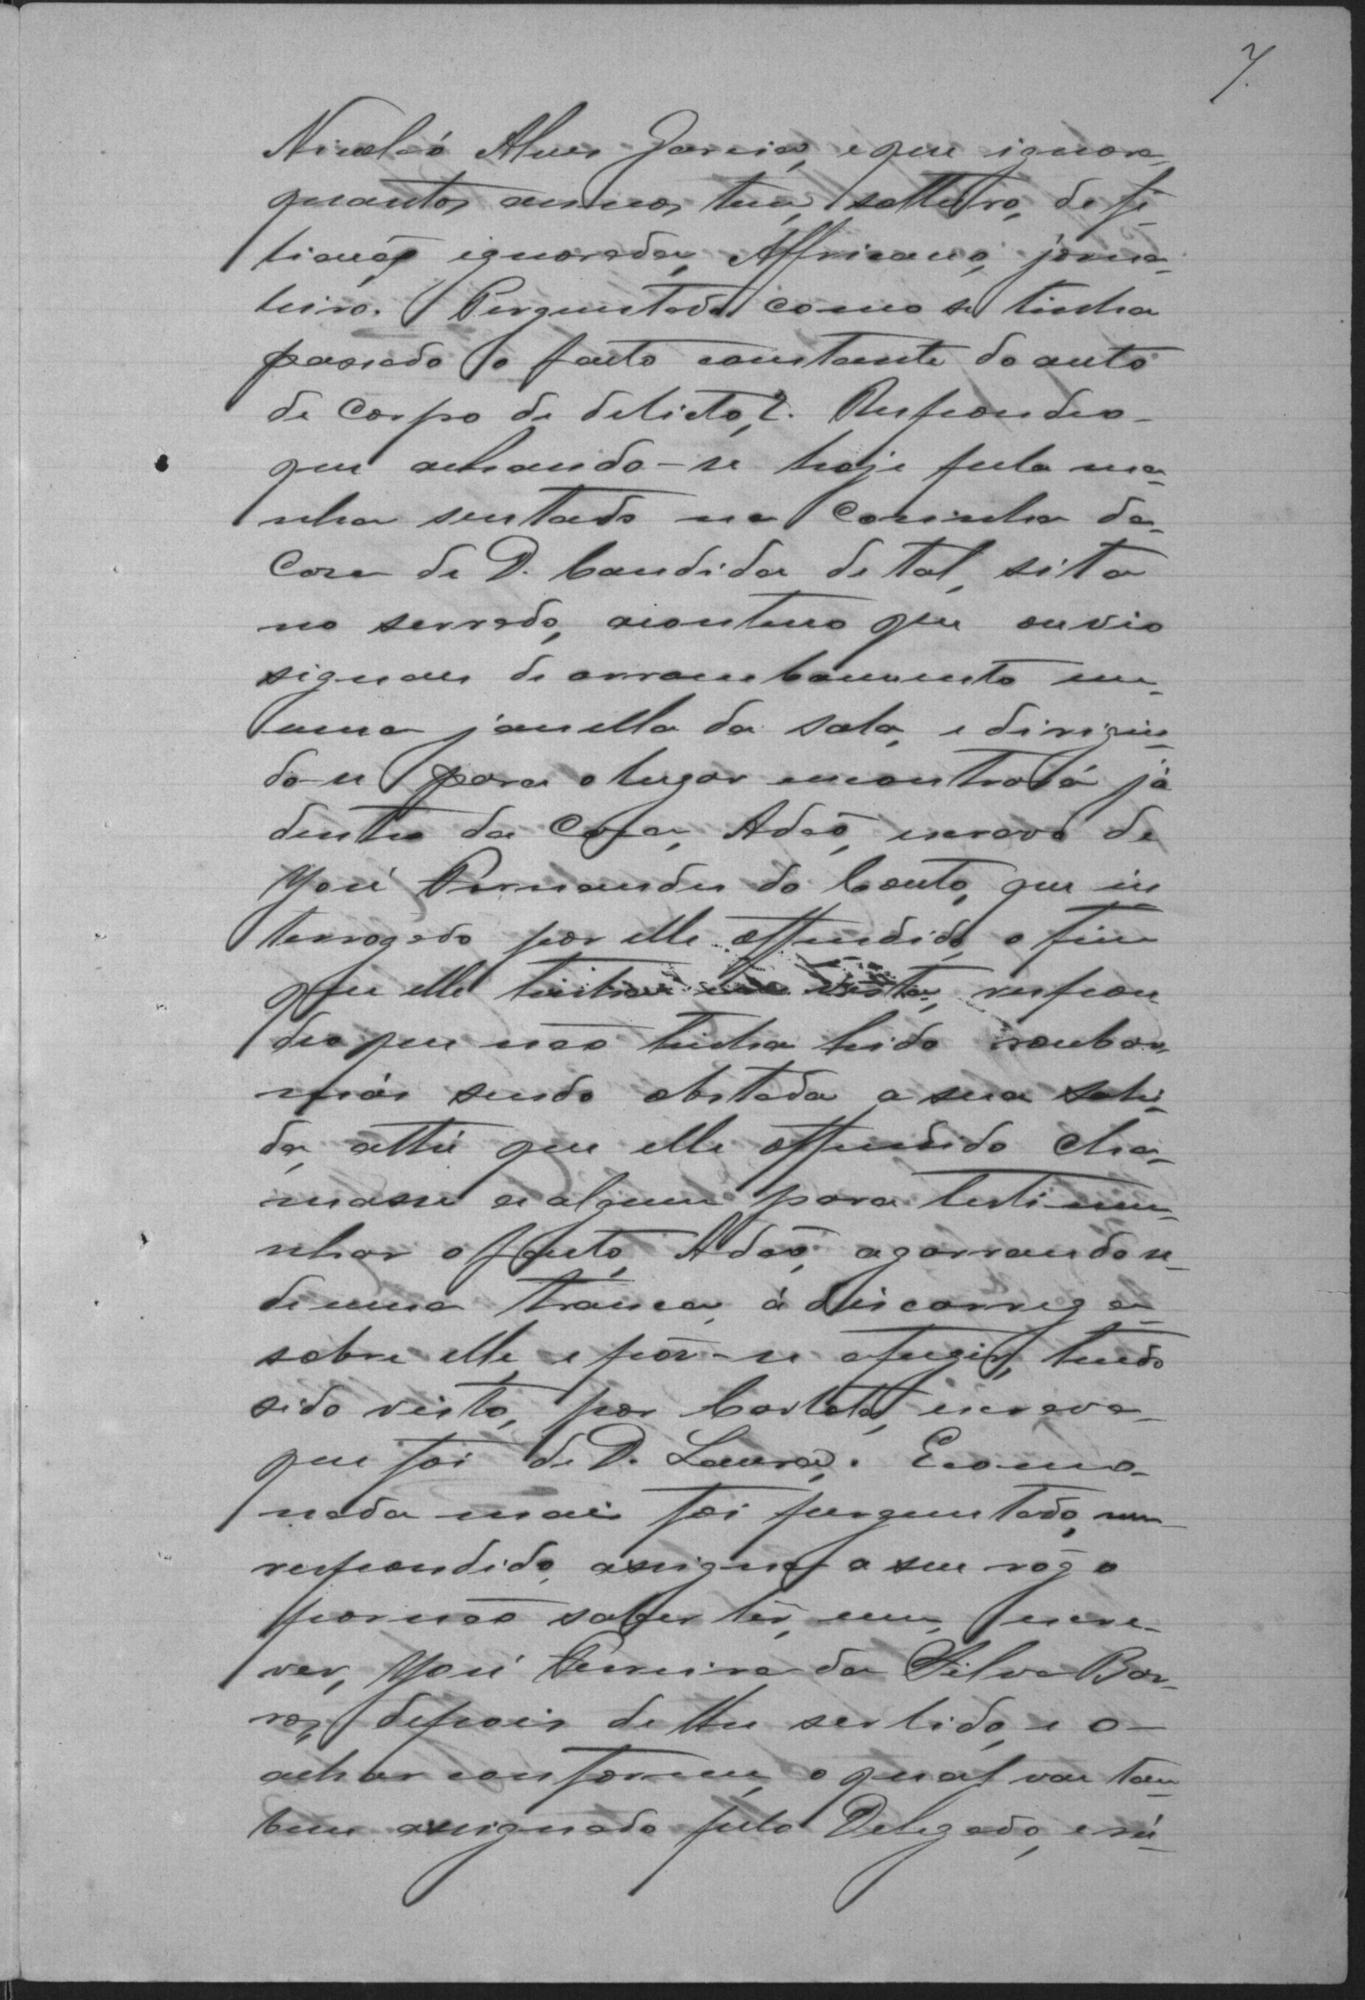 7.
Nicoláo Alves Garcia, e que ignora
quantos annos tem, solteiro, de fi-
liação ignorada, Affricano, jorna-
leiro. Perguntado como se tinha
passado o facto constante do auto
de corpo de delicto,?. Respondeo
que achando-se hoje pela ma-
nha sentado na cosinha da
casa de D. Candida de tal, sita
no serrado, aconteceo que ouvio
signaes de arrombamento em
uma janella da sala, e dirigin-
do-se para o lugar encontrára já
dentro da casa, Adão, escravo de
José Fernandes do Couto, que in
terrogado por elle offendido, o fim
que elle tinha em vista, respon
deo que não tinha hido roubar,
mas sendo obstada a sua sahi-
da, athé que elle offendido cha-
masse a alguem para testimu-
nhar o facto, Adão, agarrando-se
de uma tranca, á discarrega
sobre elle, e pôr-se a fugir, tendo
sido visto, por Carlota, escrava
que foi de D. Laura. E como
nada mais foi perguntado, nem
respondido, assigna a seu rogo
por não saber lêr, nem escre-
ver, José Ferreira da Silva Bar-
ros, depois de lhe ser lido, e o
achar conforme, o qual vae tam-
bem assignado pelo Delegado, e ru-